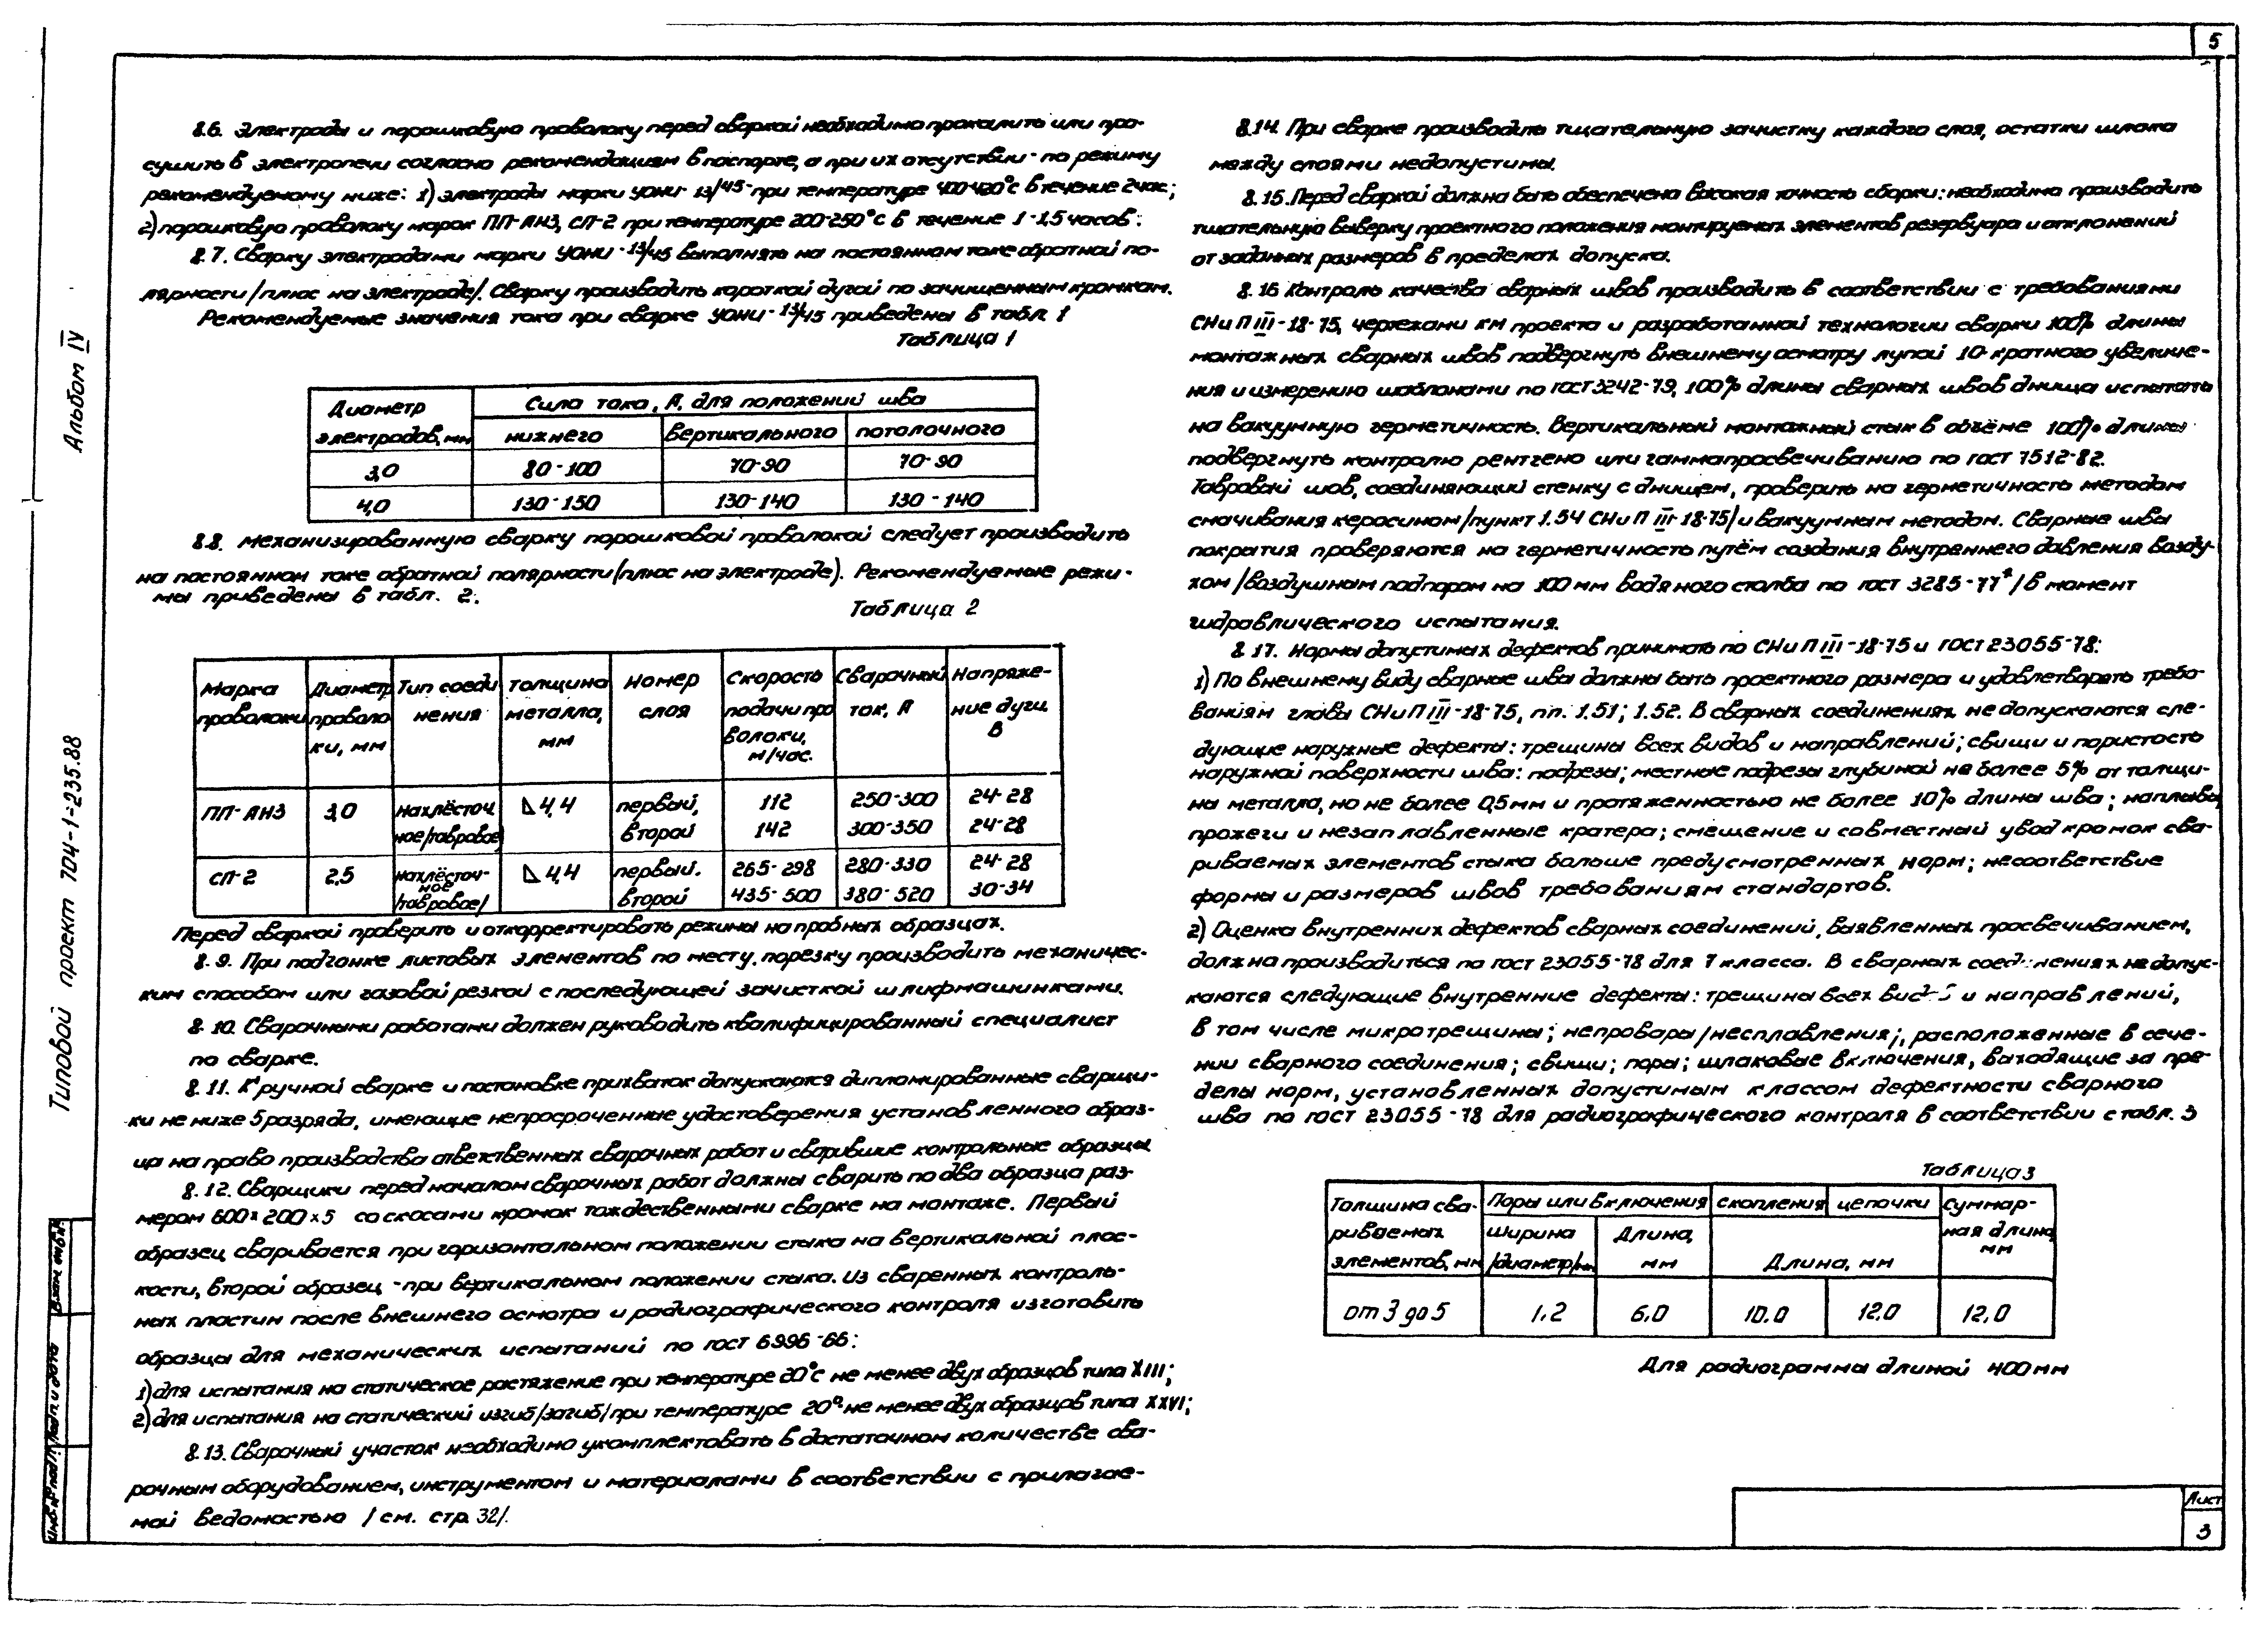 5
8.6. Электроды и порошковую проволоку перед сваркой необходимо прокалить или про-
сушить в электропечи согласно рекомендациям в паспорте, а при их отсутствии - по режиму
рекомендуемому ниже: 1) электроды марки УОНИ-13/45 - при температуре 400-420°С в течение 2 час;
2) порошковую проволоку марок ПП-АН3, СП-2 при температуре 200-250°С в течение 1-1,5 часов.
8.7. Сварку электродами марки УОНИ-13/45 выполнять на постоянном токе обратной по-
лярности /плюс на электроде/. Сварку производить короткой дугой по зачищенным кромкам.
Рекомендуемые значения тока при сварке УОНИ-13/45 приведены в табл. 1
Таблица 1
Диаметр Сила тока, А, для положений шва
электродов, мм нижнего вертикального потолочного
3,0 80-100 70-90 70-90
4,0 130-150 130-140 130-140
8.8. Механизированную сварку порошковой проволокой следует производить
на постоянном токе обратной полярности /плюс на электроде). Рекомендуемые режи-
мы приведены в табл. 2.
Таблица 2
Марка Диаметр Тип соеди толщина Номер Скорость Сварочный Напряже-
проволоки проволо нения металла, слоя подачи про ток, А ние дуги
ки, мм мм волоки, В
м/час.
ПП-АН3 3,0 нахлёсточ 4,4 первый, 112 250-300 24-28
ное/тавровое/ второй 142 300-350 24-28
СП-2 2,5 нахлёсточ- 4,4 первый. 265-298 280-330 24-28
ное
/тавровое/ второй 435-500 380-520 30-34
Перед сваркой проверить и откорректировать режимы на пробных образцах.
8.9. При подгонке листовых элементов по месту, порезку производить механичес-
ким способом или газовой резкой с последующей зачисткой шлифмашинками.
8.10. Сварочными работами должен руководить квалифицированный специалист
по сварке.
8.11. К ручной сварке и постановке прихваток допускаются дипломированные сварщи-
ки не ниже 5 разряда, имеющие непросроченные удостоверения установленного образ-
ца на право производства ответственных сварочных работ и сварившие контрольные образцы
8.12. Сварщики перед началом сварочных работ должны сварить по два образца раз-
мером 600×200×5 со скосами кромок тождественными сварке на монтаже. Первый
образец сваривается при горизонтальном положении стыка на вертикальной плос-
кости, второй образец - при вертикальном положении стыка. Из сваренных контроль-
ных пластин после внешнего осмотра и радиографического контроля изготовить
образцы для механических испытаний по ГОСТ 6996-66:
1) для испытания на статическое растяжение при температуре 20°С не менее двух образцов типа XIII;
2) для испытания на статический изгиб/загиб/ при температуре 20° не менее двух образцов типа XXVI;
8.13. Сварочный участок необходимо укомплектовать в достаточном количестве сва-
рочным оборудованием, инструментом и материалами в соответствии с прилагае-
мой ведомостью /см. стр. 32/.
8.14. При сварке производить тщательную зачистку каждого слоя, остатки шлака
между слоями недопустимы.
8.15. Перед сваркой должна быть обеспечена высокая точность сборки: необходимо производить
тщательную выверку проектного положения монтируемых элементов резервуара и отклонений
от заданных размеров в пределах допуска.
8.16 Контроль качества сварных швов производить в соответствии с требованиями
СНиП III-18-75, чертежами КМ проекта и разработанной технологии сварки 100% длины
монтажных сварных швов подвергнуть внешнему осмотру лупой 10-кратного увеличе-
ния и измерению шаблонами по ГОСТ 3242-79, 100% длины сварных швов днища испытать
на вакуумную герметичность. Вертикальный монтажный стык в объёме 100% длины
подвергнуть контролю рентгено или гаммапросвечиванию по ГОСТ 7512-82.
Тавровый шов, соединяющий стенку с днищем, проверить на герметичность методом
смачивания керосином /пункт 1.54 СНиП III-18-75/ и вакуумным методом. Сварные швы
покрытия проверяются на герметичность путём создания внутреннего давления возду-
хом /воздушным подпором на 100 мм водяного столба по ГОСТ 3285-77*/ в момент
гидравлического испытания.
8.17. Нормы допустимых дефектов принимать по СНиП III-18-75 и ГОСТ 23055-78:
1) По внешнему виду сварные швы должны быть проектного размера и удовлетворять требо-
ваниям главы СНиП III-18-75, пп. 1.51; 1.52. В сварных соединениях не допускаются сле-
дующие наружные дефекты: трещины всех видов и направлений; свищи и пористость
наружной поверхности шва: подрезы; местные подрезы глубиной не более 5% от толщи-
ны металла, но не более 0,5мм и протяженностью не более 10% длины шва; наплывы,
прожеги и незаплавленные кратера; смещение и совместный увод кромок сва-
риваемых элементов стыка больше предусмотренных норм; несоответствие
формы и размеров швов требованиям стандартов.
2) Оценка внутренних дефектов сварных соединений, выявленных просвечиванием,
должна производиться по ГОСТ 23055-78 для 7 класса. В сварных соединениях не допус-
каются следующие внутренние дефекты: трещины всех видов и направлений,
в том числе микротрещины; непровары /несплавления/, расположенные в сече-
нии сварного соединения; свищи; поры; шлаковые включения, выходящие за пре-
делы норм, установленных допустимым классом дефектности сварного
шва по ГОСТ 23055-78 для радиографического контроля в соответствии с табл. 3
Таблица 3
Толщина сва- Поры или включения скопления цепочки Суммар-
риваемых ширина Длина, ная длина,
элементов, мм /диаметр/мм мм Длина, мм мм
от 3 до 5 1,2 6,0 10.0 12.0 12.0
Для радиограммы длиной 400 мм
Лист
3
Альбом IV
Типовой проект 704-1-235.88
Взам. инв.№
Подп. и дата
Инв.№ подл.